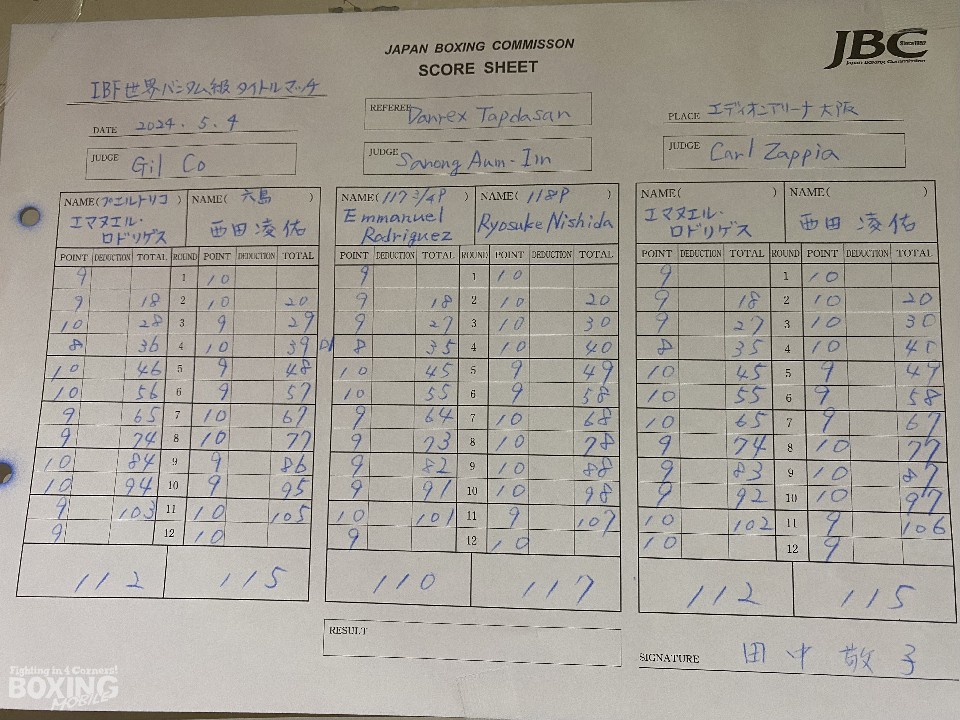 JAPAN BOXING COMMISSON
SCORE SHEET
JBC
Since1952
Japan Boxing Commission
IBF世界バンタム級タイトルマッチ
DATE 2024.5.4
REFEREE Danrex Tapdasan
PLACE エディオンアリーナ大阪
JUDGE Gil Co
JUDGE Sanong Aum-Im
JUDGE Carl Zappia
NAME(プエルトリコ) NAME( 六島 ) NAME(117 3/4P) NAME( 118P ) NAME( ) NAME( )
エマヌエル・ロドリゲス 西田凌佑 Emmanuel Rodriguez Ryosuke Nishida エマヌエル・ロドリゲス 西田凌佑
POINT DEDUCTION TOTAL ROUND POINT DEDUCTION TOTAL POINT DEDUCTION TOTAL ROUND POINT DEDUCTION TOTAL POINT DEDUCTION TOTAL ROUND POINT DEDUCTION TOTAL
9 1 10 9 1 10 9 1 10
9 18 2 10 20 9 18 2 10 20 9 18 2 10 20
10 28 3 9 29 9 27 3 10 30 9 27 3 10 30
8 36 4 10 39 8 35 4 10 40 8 35 4 10 40
10 46 5 9 48 10 45 5 9 49 10 45 5 9 49
10 56 6 9 57 10 55 6 9 58 10 55 6 9 58
9 65 7 10 67 9 64 7 10 68 10 65 7 9 67
9 74 8 10 77 9 73 8 10 78 9 74 8 10 77
10 84 9 9 86 9 82 9 10 88 9 83 9 10 87
10 94 10 9 95 9 91 10 10 98 9 92 10 10 97
9 103 11 10 105 10 101 11 9 107 10 102 11 9 106
9 12 10 9 12 10 10 12 9
112 115 110 117 112 115
RESULT
SIGNATURE 田中敬子
Fighting in 4 Corners!
BOXING
MOBILE